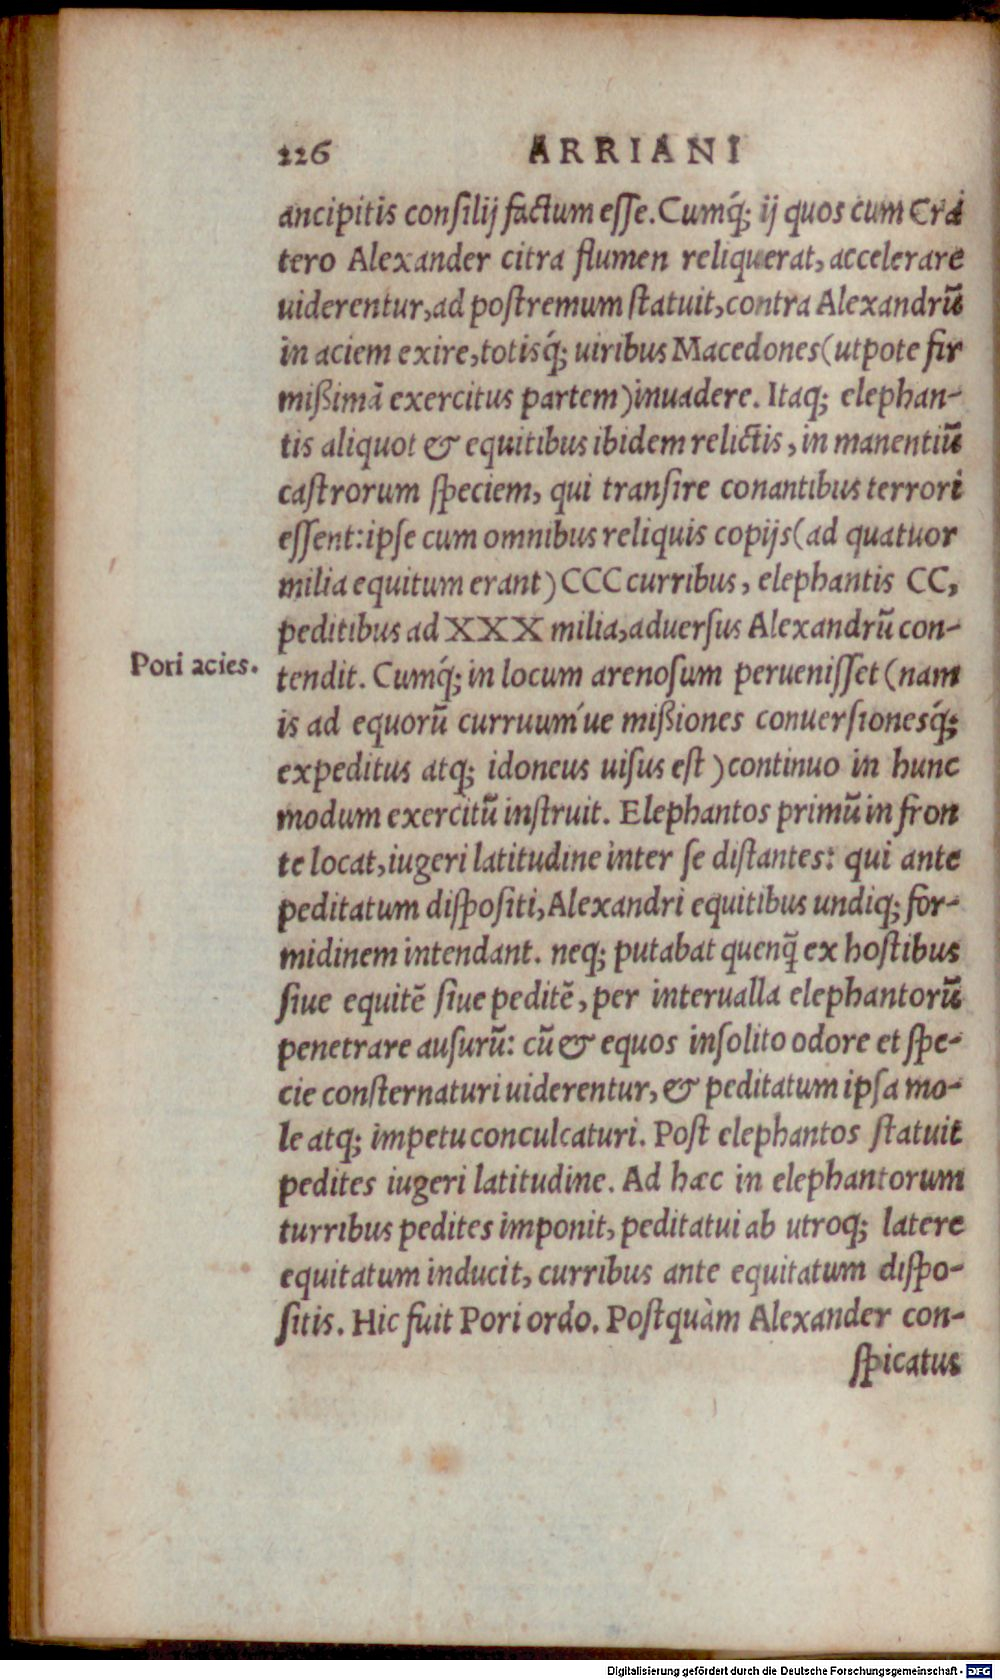 226 ARRIANI
ancipitis conſilij factum eſſe. Cumq́; ij quos cum Cra
tero Alexander citra flumen reliquerat, accelerare
uiderentur, ad poſtremum ſtatuit, contra Alexandrũ
in aciem exire, totisq́; uiribus Macedones (utpote fir
mißimã exercitus partem) inuadere. Itaq; elephan-
tis aliquot & equitibus ibidem relictis, in manentiũ
caſtrorum ſpeciem, qui tranſire conantibus terrori
eſſent: ipſe cum omnibus reliquis copijs (ad quatuor
milia equitum erant) CCC curribus, elephantis CC,
peditibus ad XXX milia, aduerſus Alexandrũ con-
Pori acies.
tendit. Cumq́; in locum arenoſum perueniſſet (nam
is ad equorũ curruum´ue mißiones conuerſionesq́;
expeditus atq; idoneus uiſus eſt) continuo in hunc
modum exercitũ inſtruit. Elephantos primũ in fron
te locat, iugeri latitudine inter ſe diſtantes: qui ante
peditatum diſpoſiti, Alexandri equitibus undiq; for-
midinem intendant. neq; putabat quenq̃ ex hoſtibus
ſiue equitẽ ſiue peditẽ, per interualla elephantorũ
penetrare auſurũ: cũ & equos inſolito odore et ſpe-
cie conſternaturi uiderentur, & peditatum ipſa mo-
le atq; impetu conculcaturi. Poſt elephantos ſtatuit
pedites iugeri latitudine. Ad hæc in elephantorum
turribus pedites imponit, peditatui ab utroq; latere
equitatum inducit, curribus ante equitatum diſpo-
ſitis. Hic fuit Pori ordo. Poſtquàm Alexander con-
ſpicatus
Digitalisierung gefördert durch die Deutsche Forschungsgemeinschaft - DFG